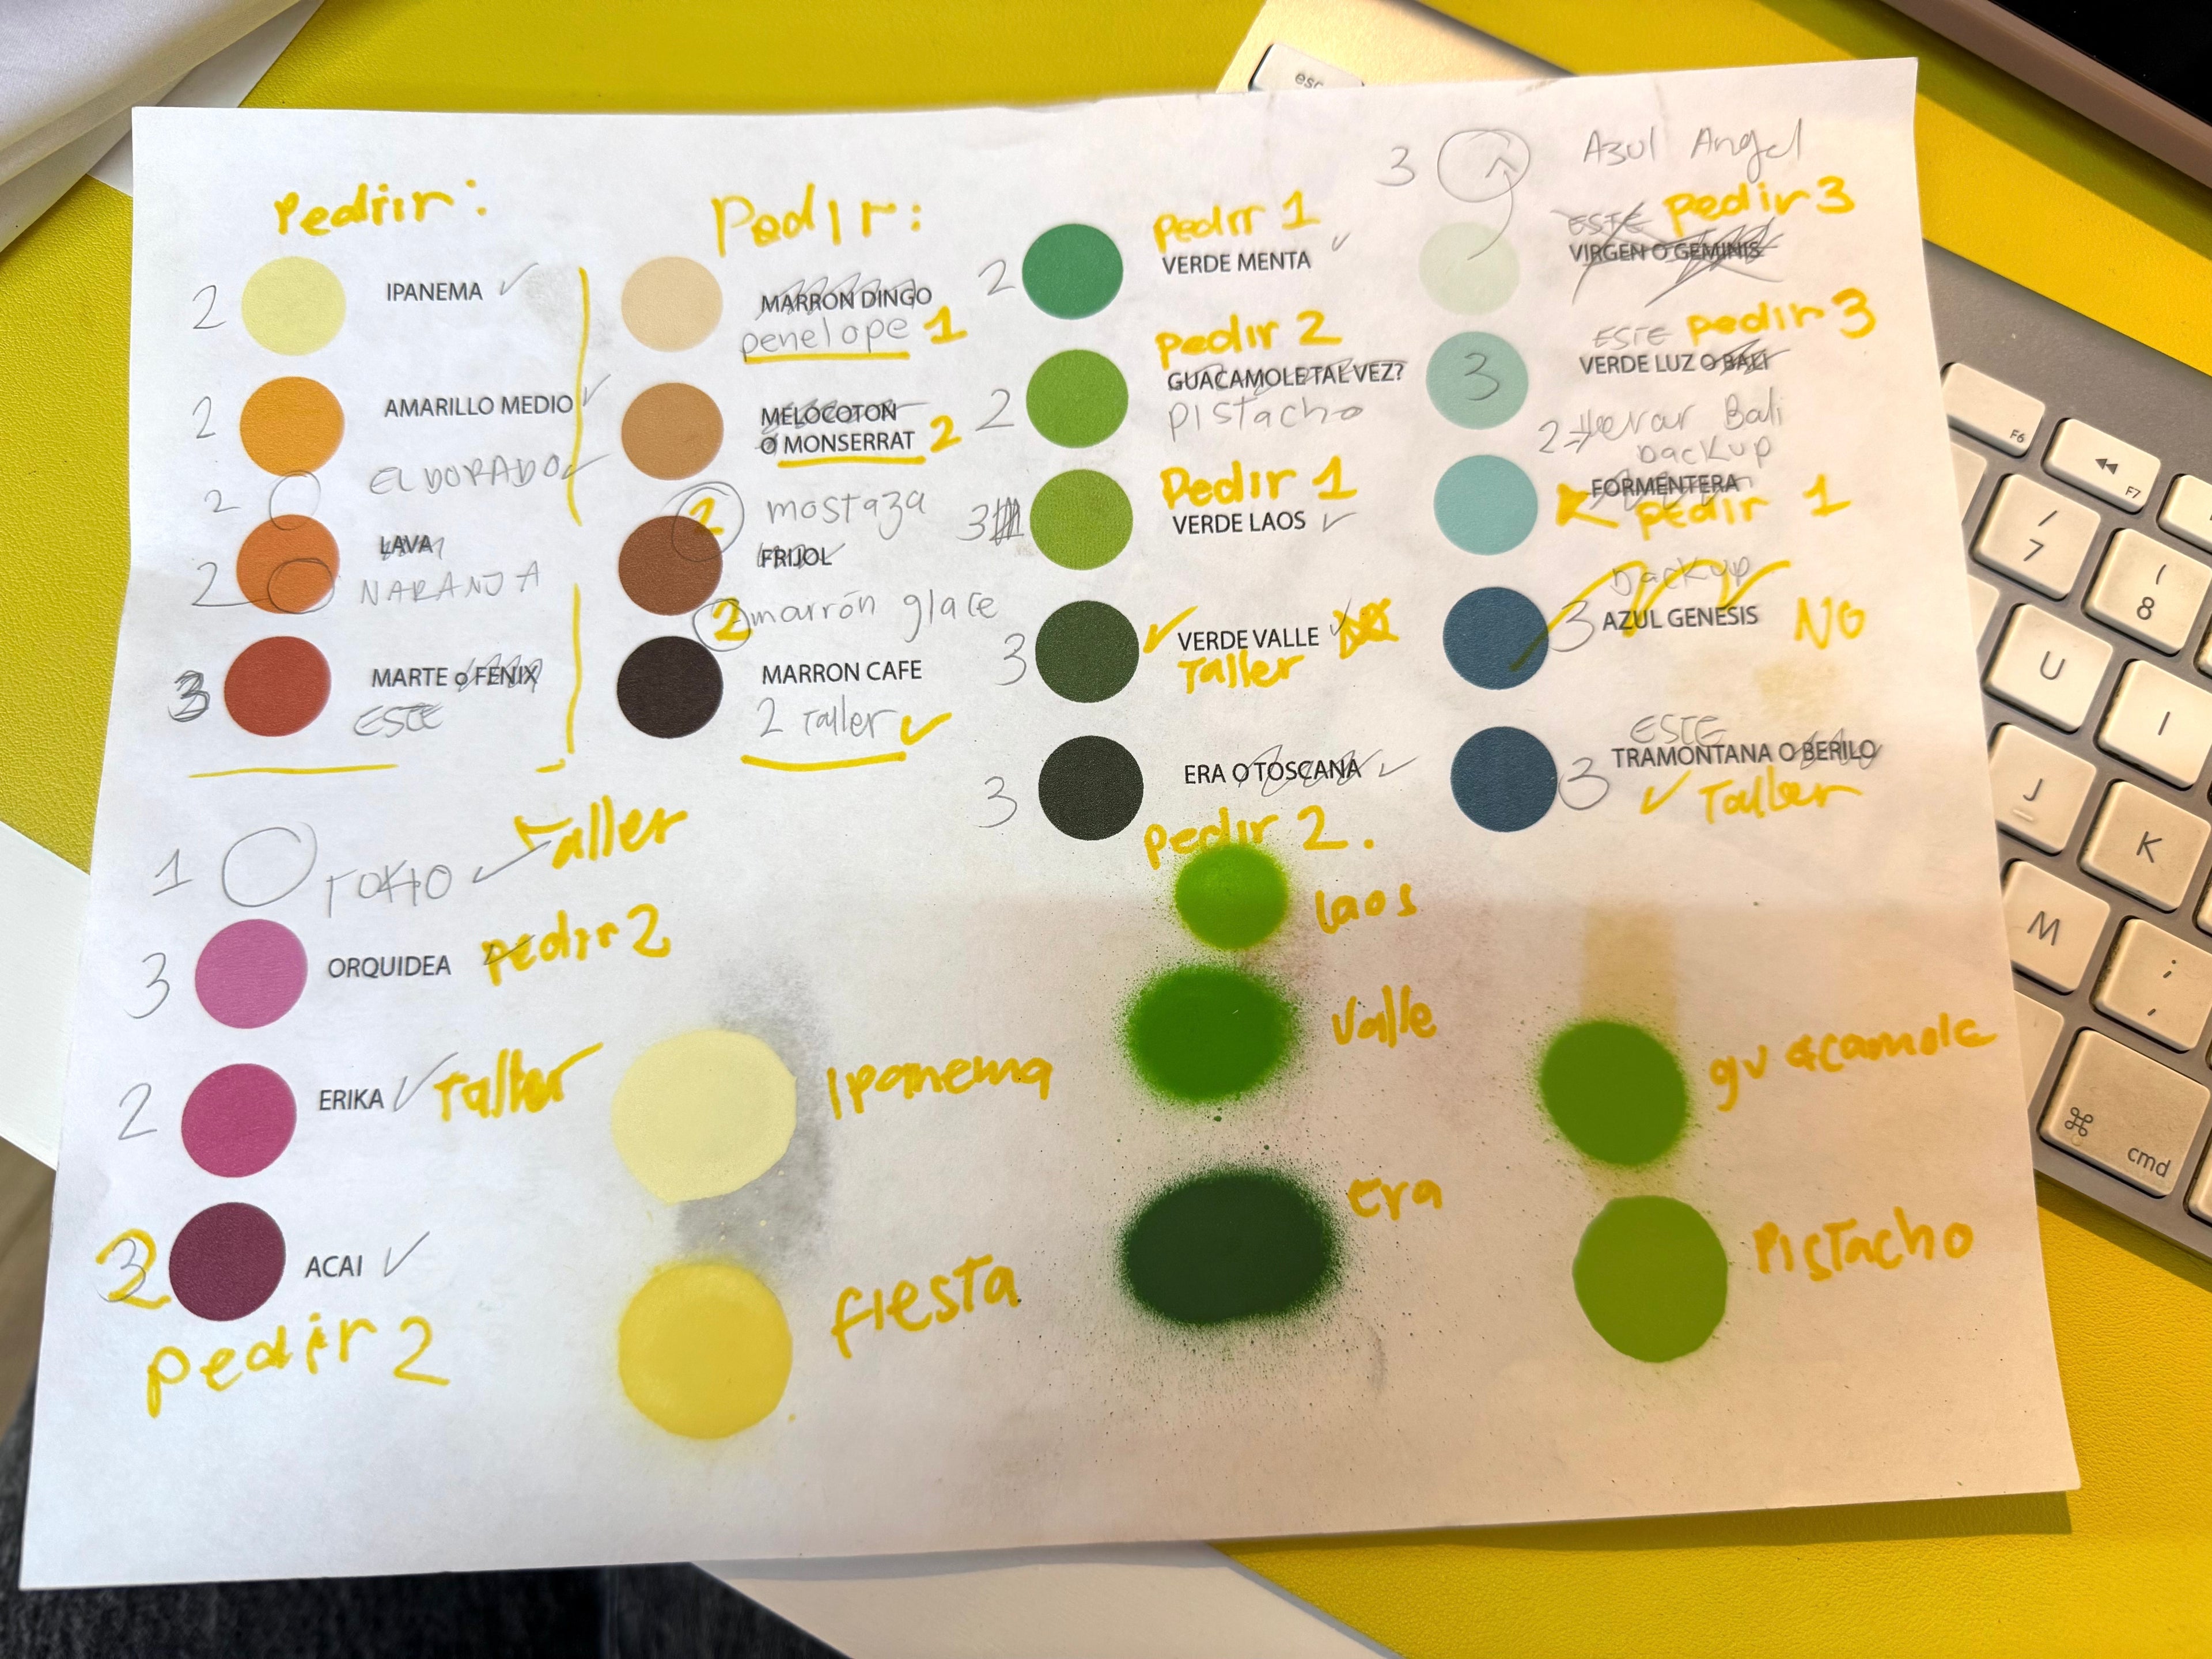 Pedir:
2 IPANEMA ✓
2 AMARILLO MEDIO ✓
2 EL DORADO ✓
LAVA
2 NARANJA
3 MARTE o FENIX
ESTE
Pedir:
MARRON DINGO
penelope 1
MELOCOTON
O MONSERRAT 2
2 mostaza
FRIJOL
2 marrón glace
MARRON CAFE
2 Taller ✓
Pedir 1
2 VERDE MENTA ✓
Pedir 2
2 GUACAMOLE TAL VEZ?
Pistacho
Pedir 1
3 VERDE LAOS ✓
3 ✓ VERDE VALLE ✓
Taller
3 ERA O TOSCANA ✓
Pedir 2.
3 Azul Angel
ESTE Pedir 3
VIRGEN O GEMINIS
ESTE Pedir 3
3 VERDE LUZ O BALI
2→ llevar Bali
backup
FORMENTERA
Pedir 1
backup
3 AZUL GENESIS NO
ESTE
3 TRAMONTANA O BERILO
✓ Taller
1 TOKIO ✓ Taller
3 ORQUIDEA Pedir 2
2 ERIKA ✓ Taller
2 ACAI ✓
Pedir 2
Ipanema
fiesta
laos
Valle
Era
guacamole
Pistacho
esc
F6
F7
/
7
(
8
U
I
J
K
M
;
,
⌘
cmd